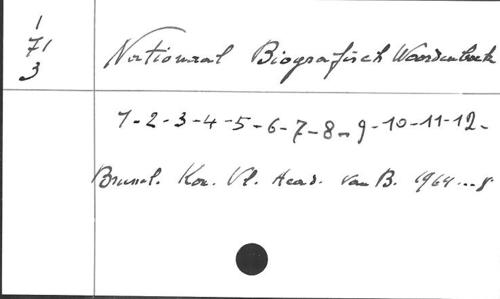 1
71
3
Nationaal Biografisch Woordenboek
1-2-3-4-5-6-7-8-9-10-11-12-
Brussel. Kon. Vl. Acad. van B. 1964...